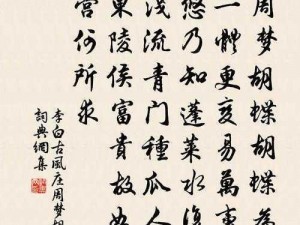 周梦胡蝶胡蝶為
一體更变易萬事
悠乃知蓬莱水復
浅流青门種瓜人
東陵侯富貴故如
营何所求
李白古風庄周梦胡
詞典網集